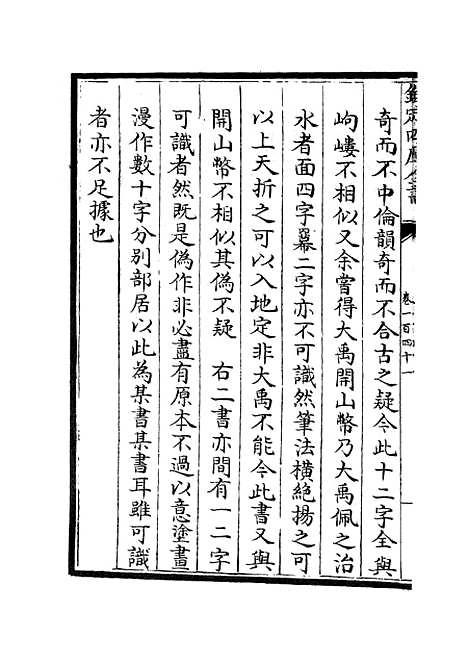 欽定四庫全書
卷一百四十一
奇而不中倫韻奇而不合古之疑今此十二字全與
岣嶁不相似又余嘗得大禹開山幣乃大禹佩之治
水者面四字冪二字亦不可識然筆法橫絶揚之可
以上天折之可以入地定非大禹不能今此書又與
開山幣不相似其偽不疑 右二書亦間有一二字
可識者然既是偽作非必盡有原本不過以意塗畫
漫作數十字分别部居以此為某書某書耳雖可識
者亦不足據也